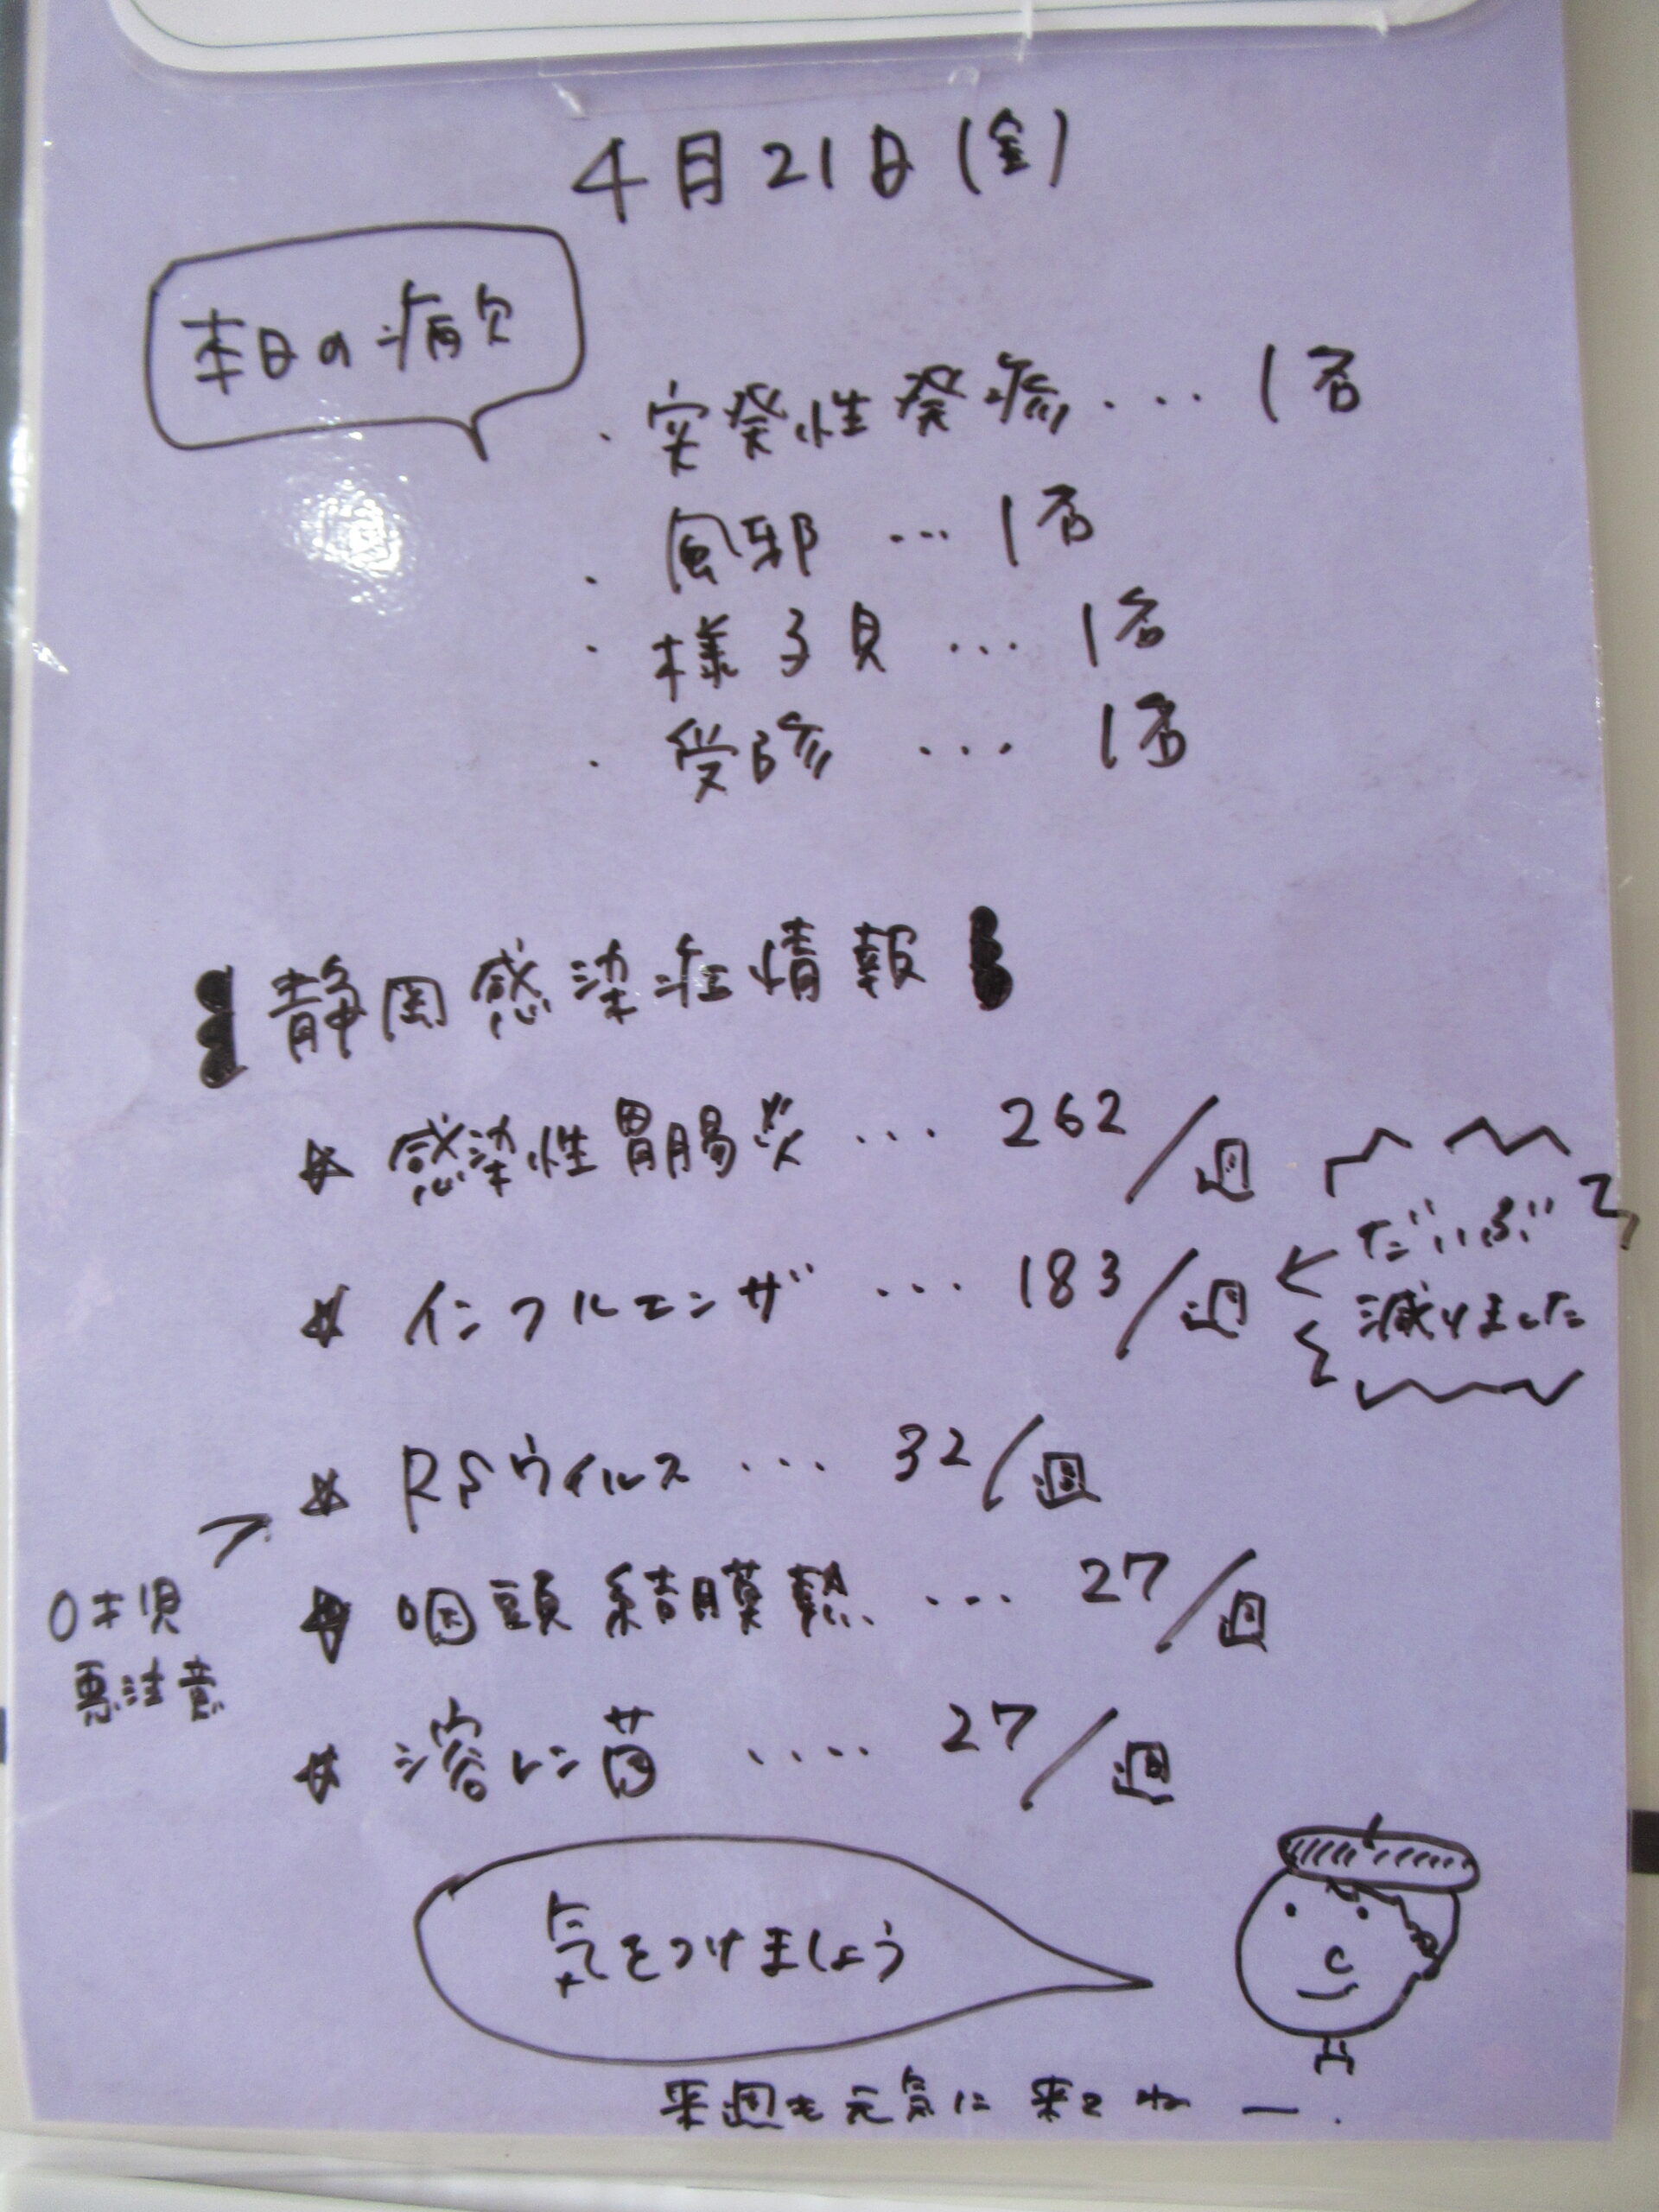 4月21日(金)
本日の病欠
・突発性発疹... 1名
・風邪 ... 1名
・様子見 ... 1名
・受診 ... 1名
静岡感染症情報
☆ 感染性胃腸炎 ... 262/週
☆ インフルエンザ ... 183/週
← だいぶ
減りました
☆ RSウイルス ... 32/週
0才児
要注意
☆ 咽頭結膜熱 ... 27/週
☆ 溶レン菌 .... 27/週
気をつけましょう
来週も元気に来てねー.